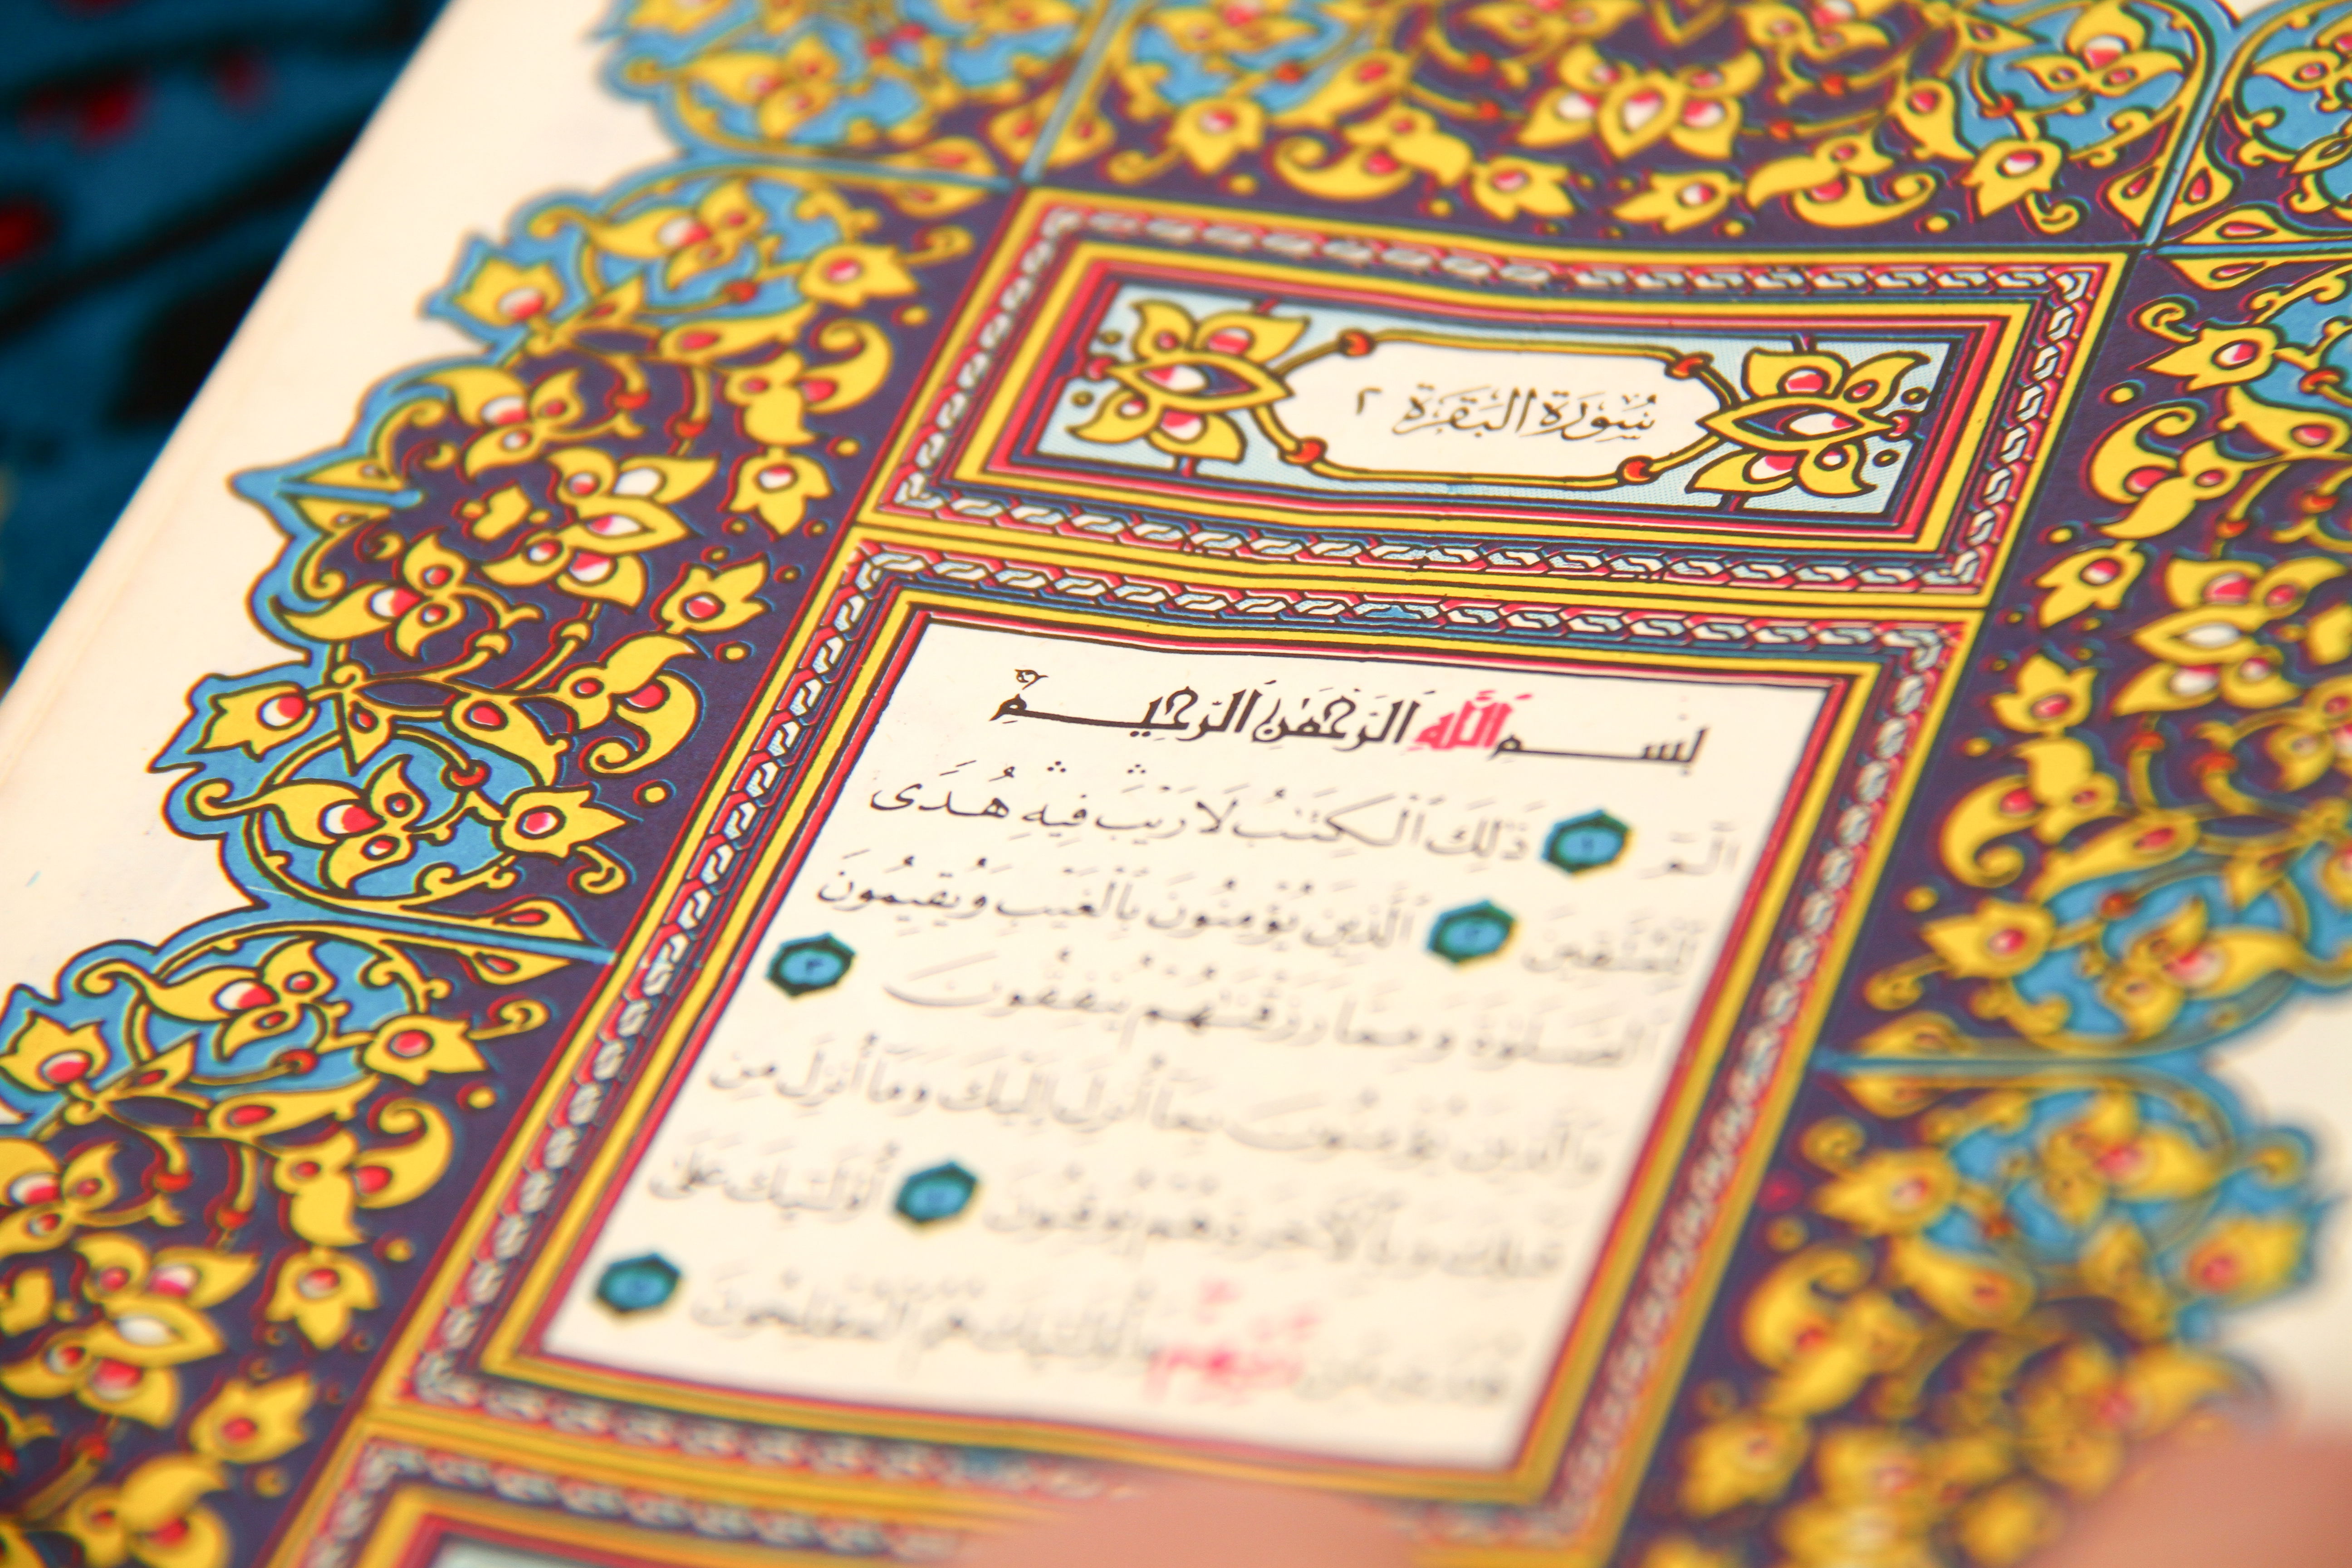 سُورَة البَقَرَة ٢
بِسْمِ اللَّهِ الرَّحْمَٰنِ الرَّحِيمِ
الٓمٓ ١ ذَٰلِكَ ٱلْكِتَٰبُ لَا رَيْبَ ۛ فِيهِ ۛ هُدًى
لِّلْمُتَّقِينَ ٢ ٱلَّذِينَ يُؤْمِنُونَ بِٱلْغَيْبِ وَيُقِيمُونَ
ٱلصَّلَوٰةَ وَمِمَّا رَزَقْنَٰهُمْ يُنفِقُونَ ٣
وَٱلَّذِينَ يُؤْمِنُونَ بِمَآ أُنزِلَ إِلَيْكَ وَمَآ أُنزِلَ مِن
قَبْلِكَ وَبِٱلْءَاخِرَةِ هُمْ يُوقِنُونَ ٤ أُو۟لَٰٓئِكَ عَلَىٰ
هُدًى مِّن رَّبِّهِمْ ۖ وَأُو۟لَٰٓئِكَ هُمُ ٱلْمُفْلِحُونَ ٥